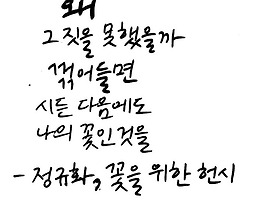 왜
그 짓을 못했을까
꺾어들면
시든 다음에도
나의 꽃인것을
- 정규화, 꽃을 위한 헌시